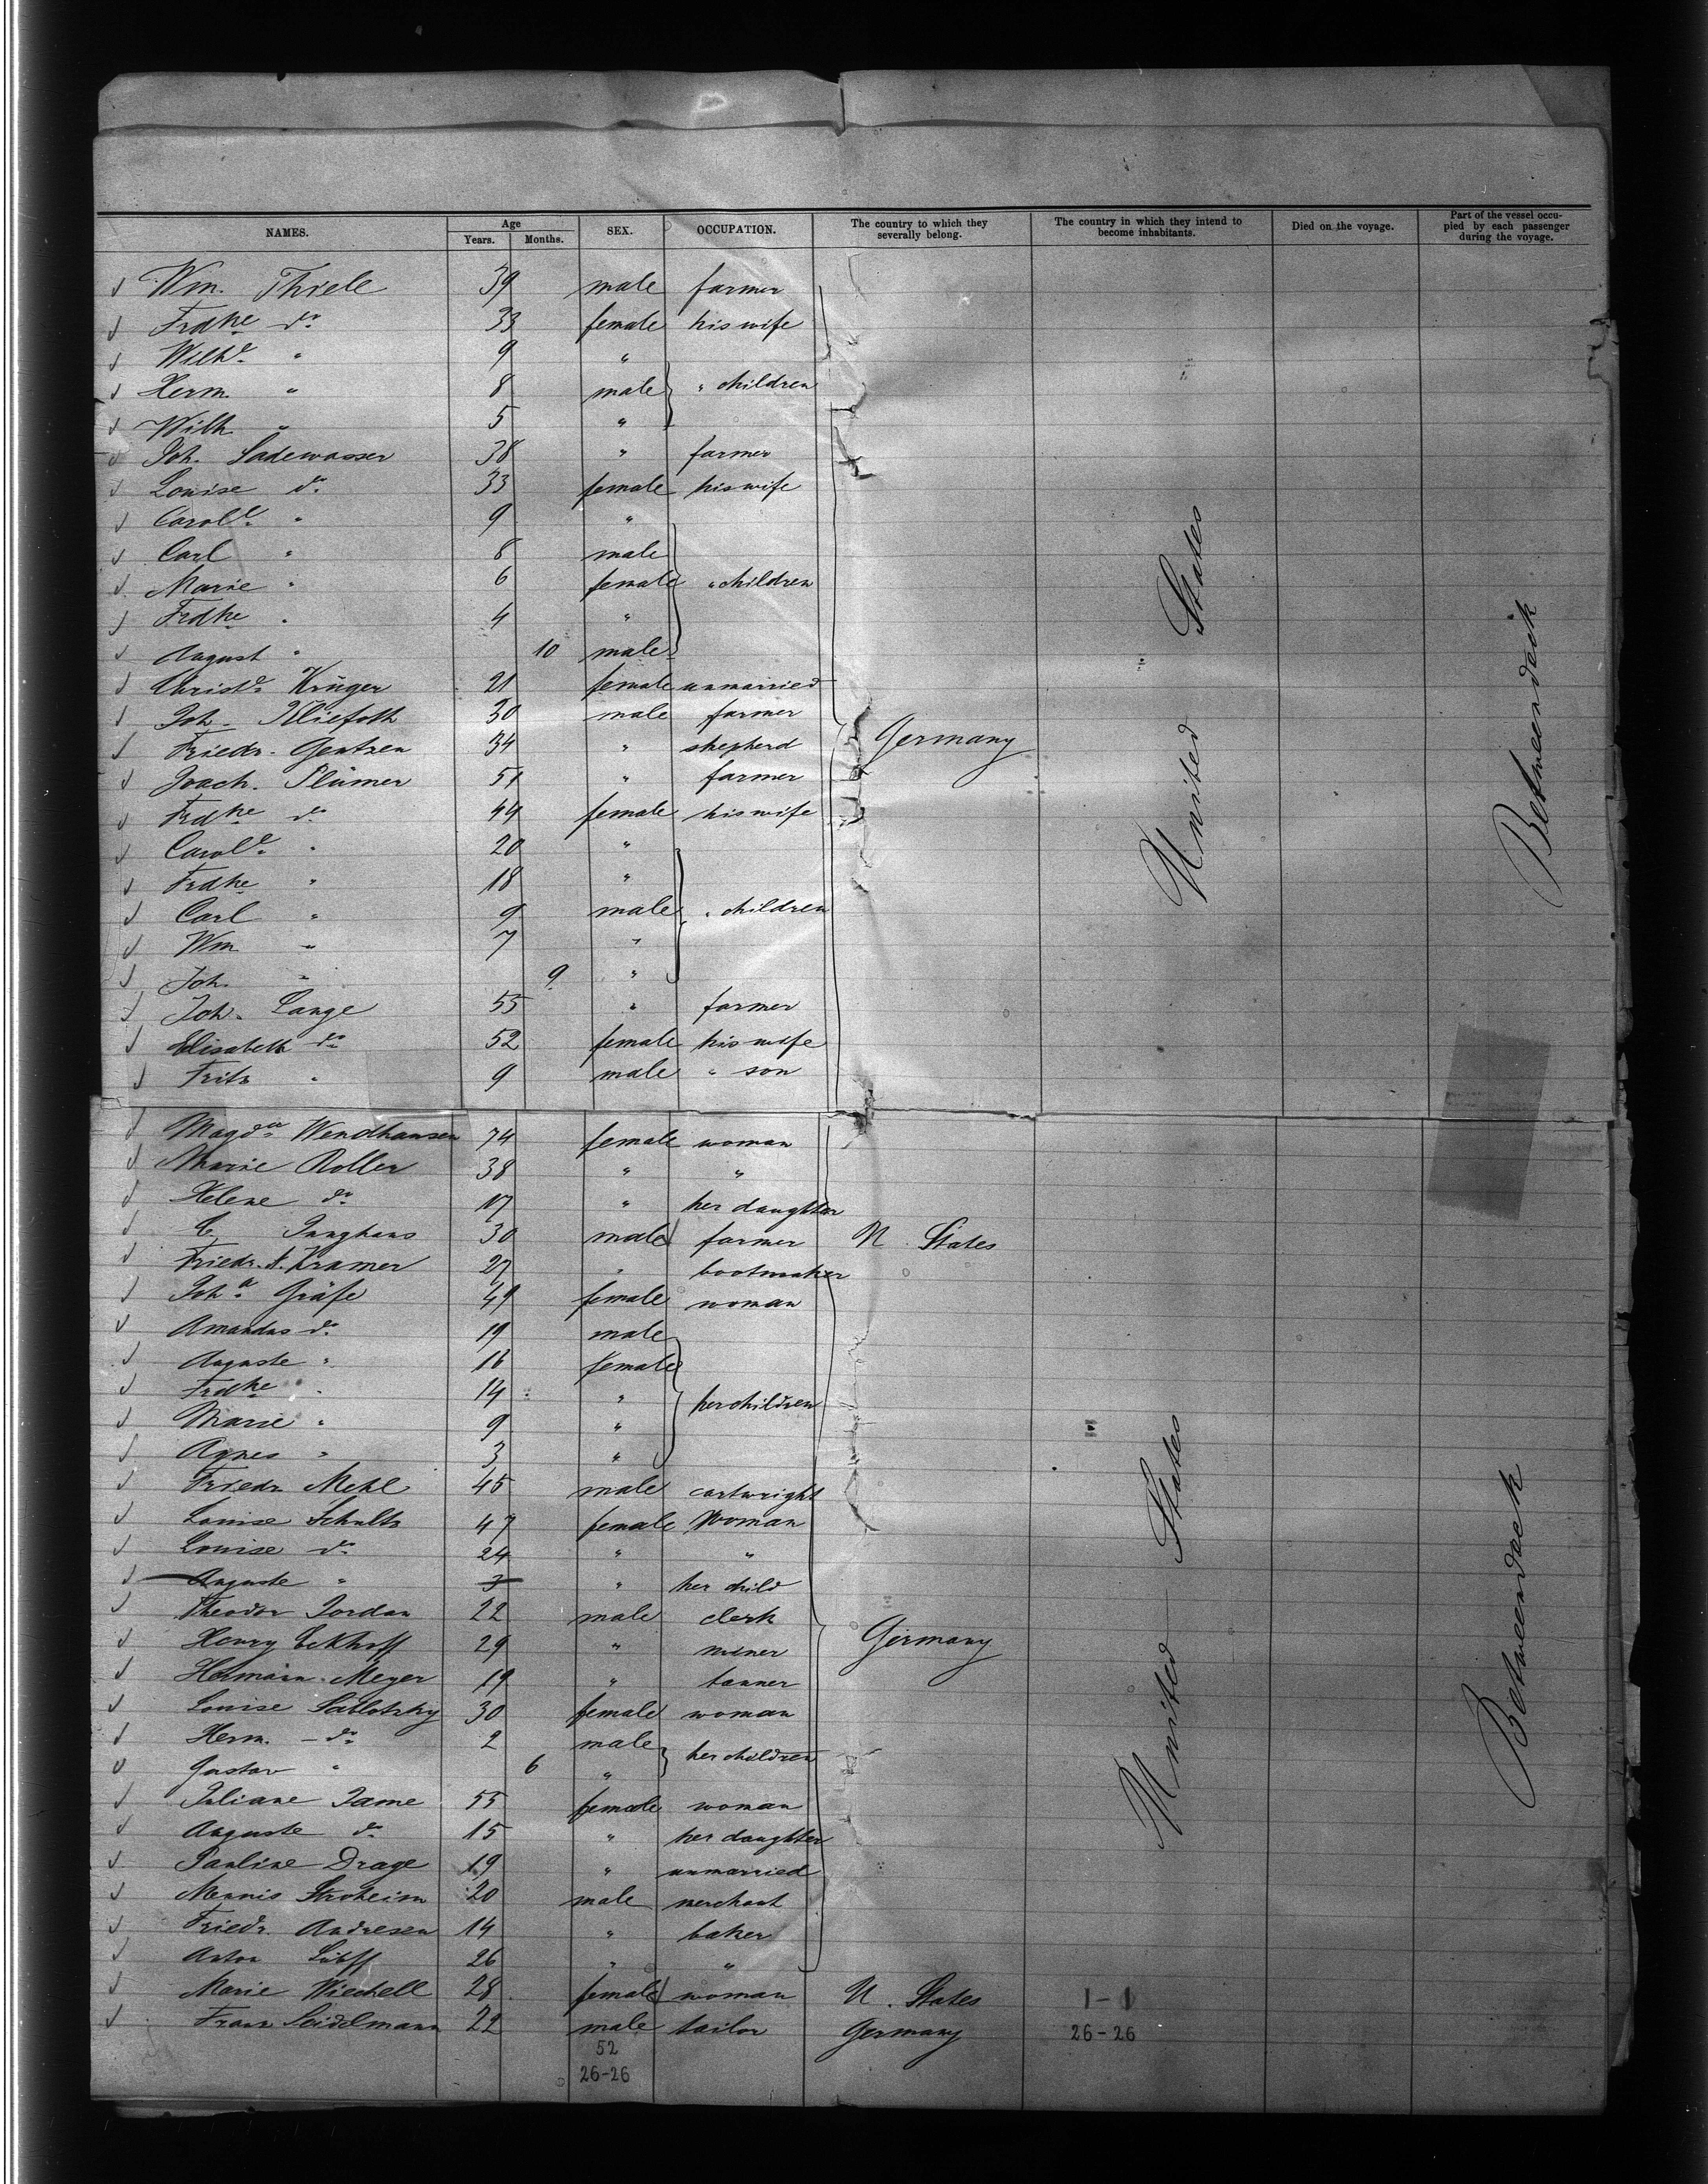 NAMES. Age Years. Months. SEX. OCCUPATION. The country to which they severally belong. The country in which they intend to become inhabitants. Died on the voyage. Part of the vessel occupied by each passenger during the voyage.
Wm. Thiele 39 male farmer
Frdke do 33 female his wife
Wilhe " 9 "
Herm. " 8 male " children
Wilh " 5 "
Joh. Ladewasser 38 " farmer
Louise do 33 female his wife
Carole " 9 "
Carl " 8 male
Marie " 6 female " children
Frdke " 4 "
August " 10 male
Christe Krüger 21 female unmarried
Joh. Kliefoth 30 male farmer
Friedr. Gentzen 34 " shepherd Germany United States Betweendeck
Joach. Plümer 51 " farmer
Frdke do 44 female his wife
Carole " 20 "
Frdke " 18 "
Carl " 9 male " children
Wm " 7 "
Joh. " 9 "
Joh. Lange 55 " farmer
Elisabeth do 52 female his wife
Fritz " 9 male " son
Magda Wendhausen 74 female woman
Marie Roller 38 " "
Helene do 17 " her daughter
C. Junghans 30 male farmer U. States
Friedr. A. Kramer 27 " bootmaker
Joha Gräfe 49 female woman
Amandus do 19 male
Auguste " 16 female
Frdke " 14 " her children
Marie " 9 "
Agnes " 3 "
Friedr Mehl 45 male cartwright
Louise Schultz 47 female Woman
Louise do 24 " "
Auguste " 3 " her child
Theodor Jordan 22 male clerk
Henry Eckhoff 29 " miner Germany United States Betweendeck
Hermann Meyer 19 " tanner
Louise Sablotzky 30 female woman
Herm. - do 2 male her children
Gustav " 6 "
Juliane Jame 55 female woman
Auguste do 15 " her daughter
Pauline Drage 19 " unmarried
Mennis Stroheim 20 male merchant
Friedr. Andresen 14 " baker
Anton 26 " "
Marie Wiechell 28 female woman U. States 1-1
Franz Seidelmann 22 male tailor Germany 26-26
52
26-26